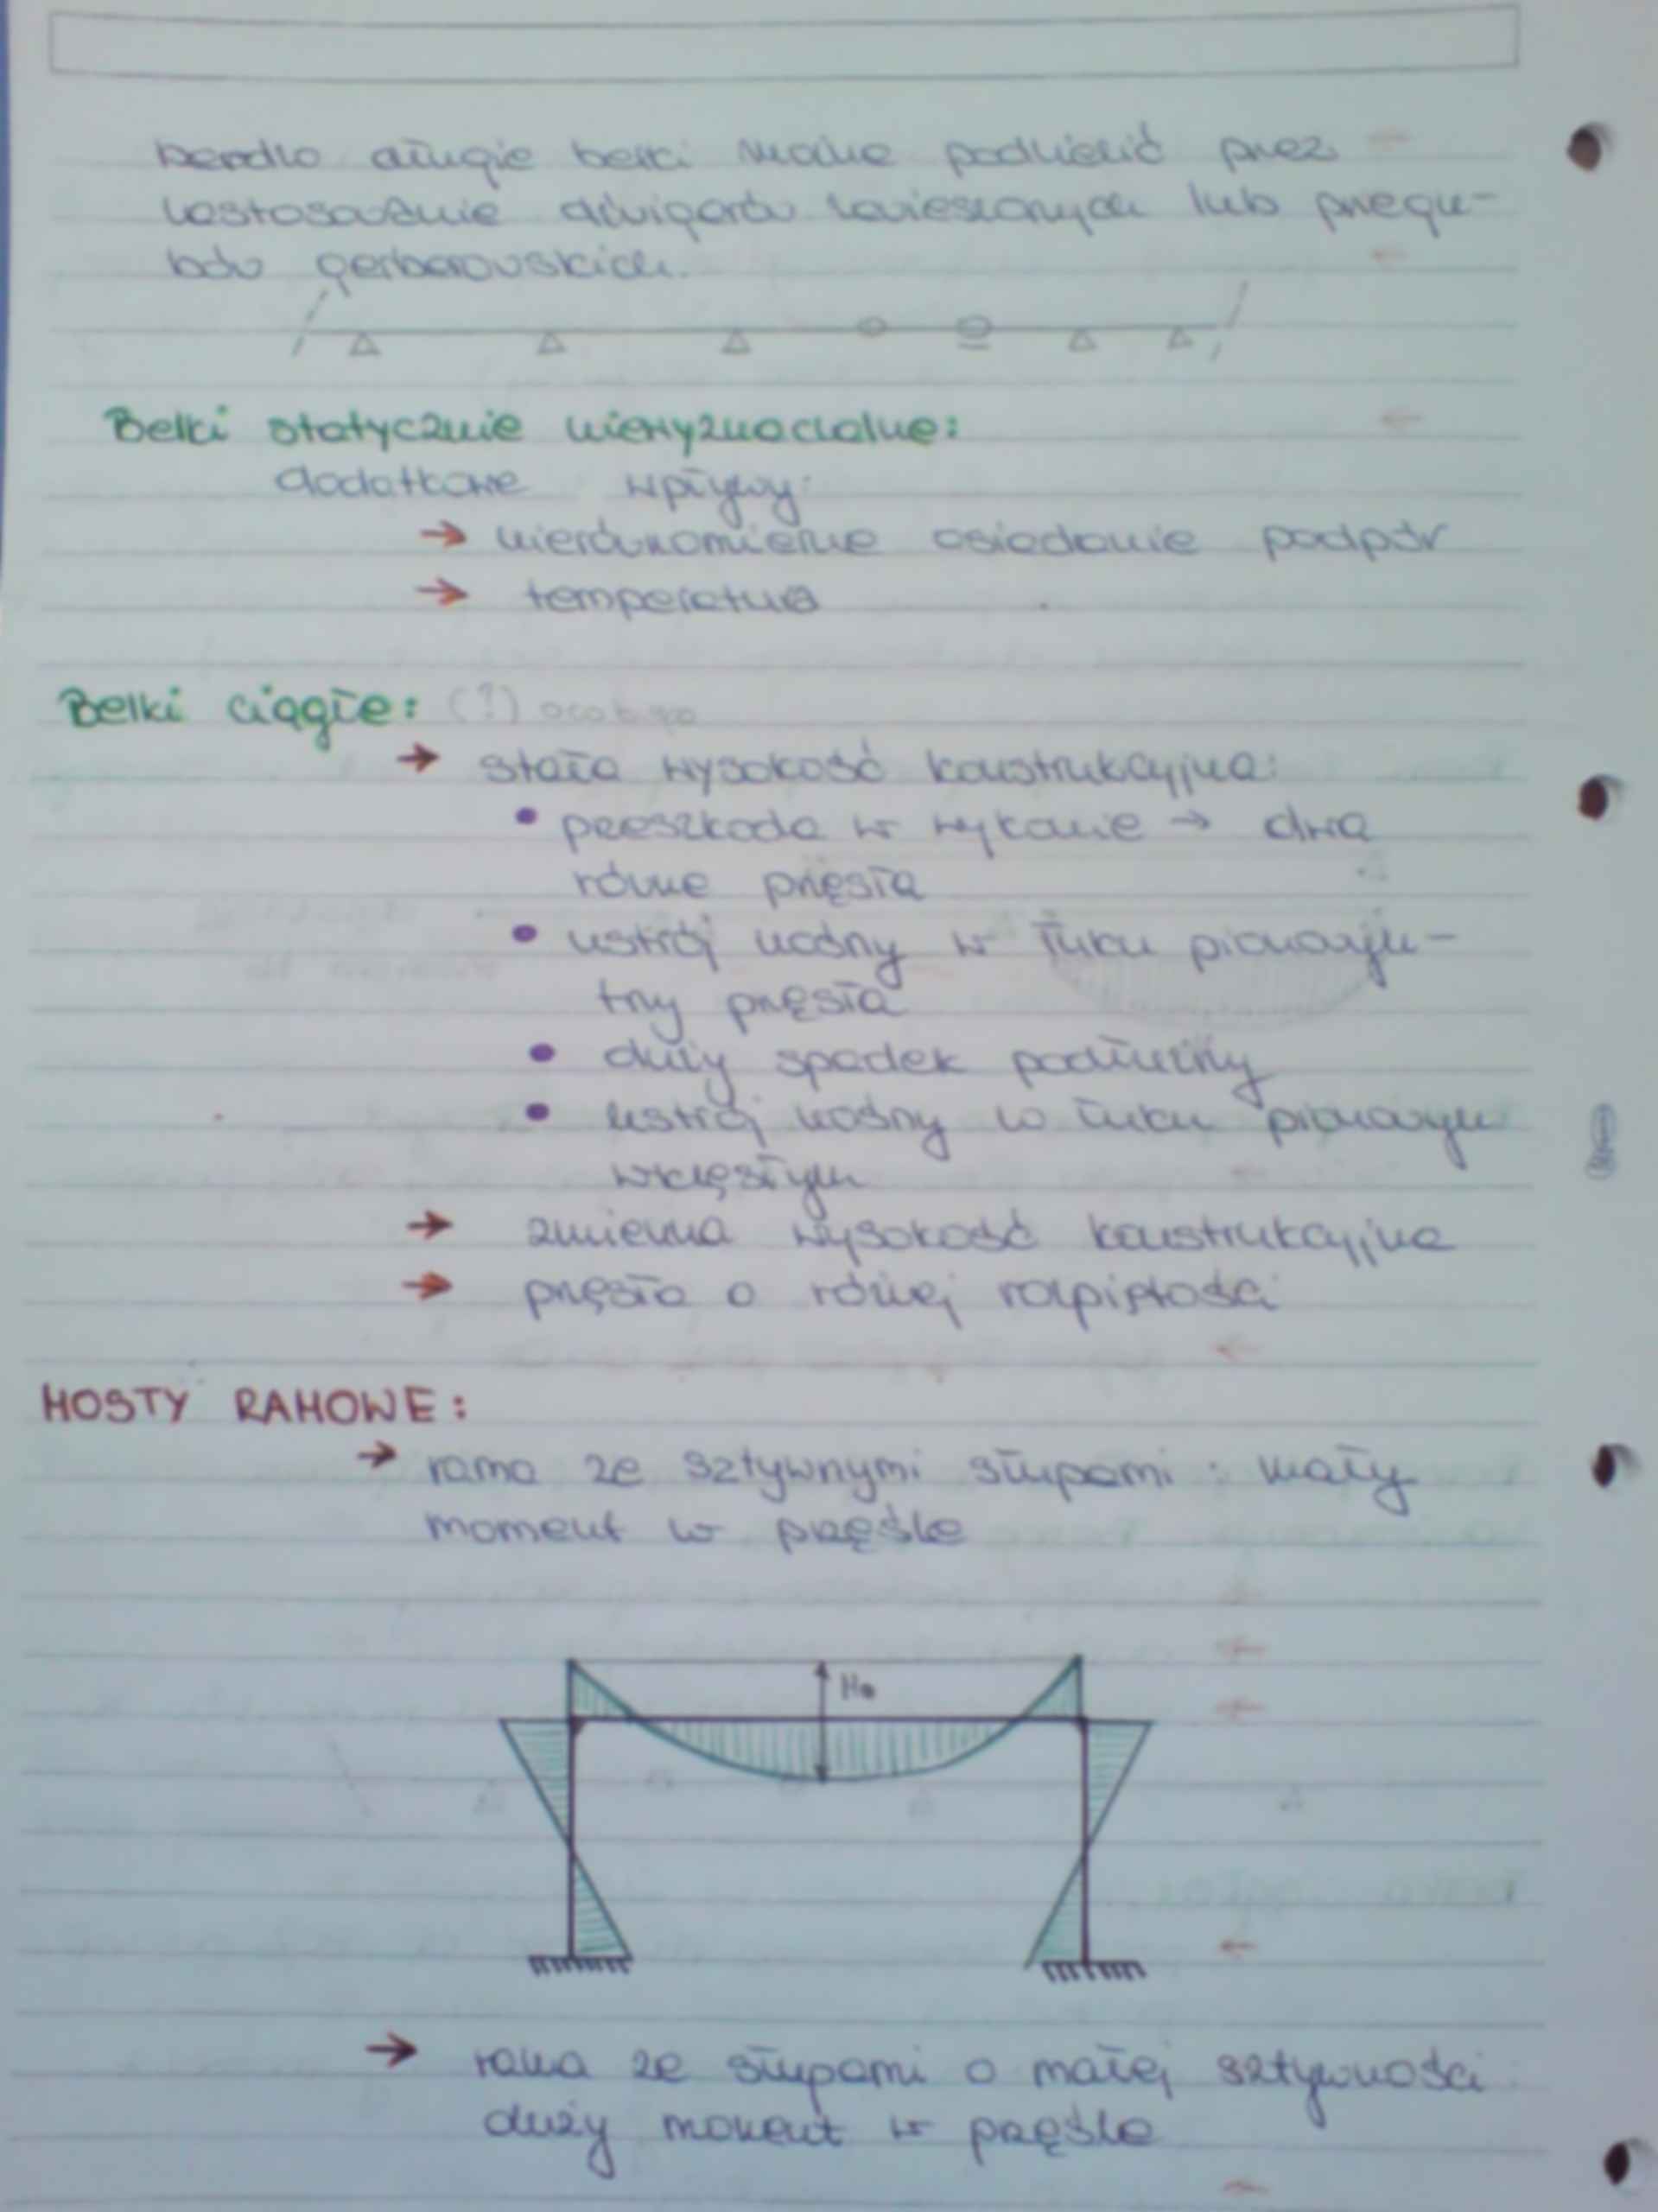 bardzo długie belki można podzielić przez
zastosowanie dźwigarów zawieszonych lub przegu-
bów gerberowskich.
Belki statycznie niewyznaczalne:
dodatkowe wpływy:
→ nierównomierne osiadanie podpór
→ temperatura
Belki ciągłe: (!)
→ stała wysokość konstrukcyjna:
• przeszkoda w wykopie → dwa
równe przęsła
• ustrój nośny w łuku pionowym –
trzy przęsła
• duży spadek podłużny
• ustrój nośny w łuku pionowym
wklęsłym
→ zmienna wysokość konstrukcyjna
→ przęsła o różnej rozpiętości
MOSTY RAMOWE:
→ rama ze sztywnymi słupami : mały
moment w przęśle
M₀
→ rama ze słupami o małej sztywności
duży moment w przęśle